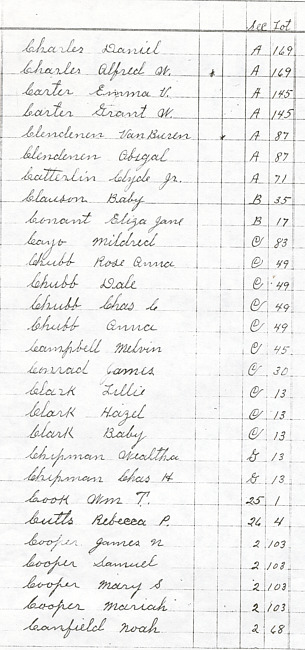 Sec Lot
Charles Daniel A 169
Charles Alfred W. A 169
Carter Emma V. A 145
Carter Grant W. A 145
Clendenen VanBuren A 87
Clindenen Abigal A 87
Catterlin Clyde Jr. A 71
Clauson Baby B 35
Conant Eliza Jane B 17
Cayo Mildred C 83
Chubb Rose Anna C 49
Chubb Dale C 49
Chubb Chas C C 49
Chubb Anna C 49
Campbell Melvin C 45
Conrad James C 30
Clark Lillie C 13
Clark Hazel C 13
Clark Baby C 13
Chipman Wealtha 13
Chipman Chas H 13
Cook Wm T. 25 1
Cutts Rebecca P. 26 4
Cooper James N 2 103
Cooper Samuel 2 103
Cooper Mary S 2 103
Cooper Mariah 2 103
Canfield Noah 2 68